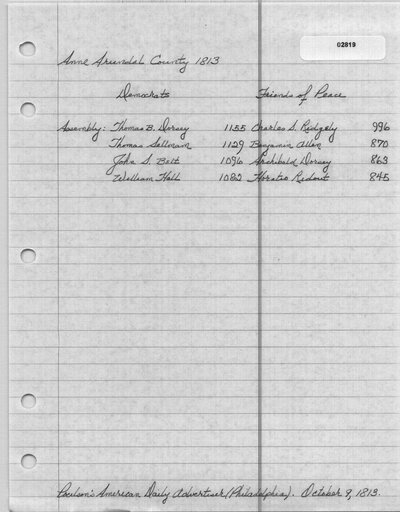 02819
Anne Arundal County 1813
Democrats Friends of Peace
Assembly: Thomas B. Dorsey 1155 Charles S. Ridgely 996
Thomas Sellman 1129 Benjamin Allen 870
John S. Belt 1096 Archibald Dorsey 863
William Hall 1082 Horatio Ridout 845
Poulson's American Daily Advertiser (Philadelphia). October 9, 1813.